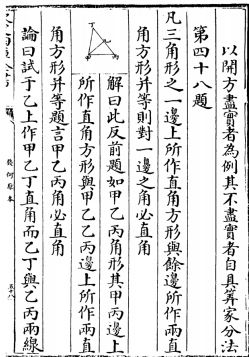 以開方盡實者為例其不盡實者自具筭家分法
第四十八題
凡三角形之一邊上所作直角方形與餘邊所作兩直
角方形并等則對一邊之角必直角
解曰此反前題如甲乙丙角形其甲丙邊上
所作直角方形與甲乙乙丙邊上所作兩直
角方形并等題言甲乙丙角必直角
論曰試于乙上作甲乙丁直角而乙丁與乙丙兩線
幾何原本